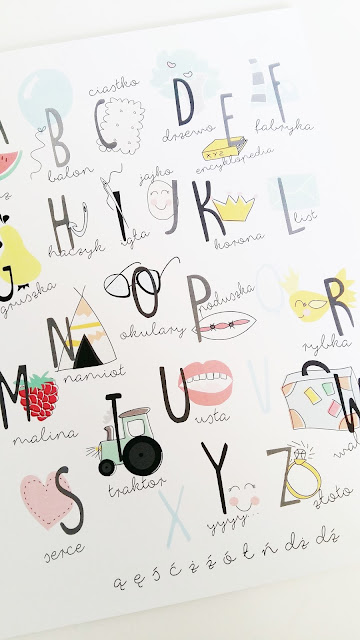 B
balon
C
ciastko
D
drzewo
E
XYZ
encyklopedia
F
fabryka
G
gruszka
H
haczyk
I
igła
J
jajko
K
korona
L
list
M
malina
N
namiot
O
okulary
P
poduszka
R
rybka
S
serce
T
traktor
U
usta
V
W
X
Y
yyyy...
Z
złoto
ą ę ś ć ż ź ó ł ń dż dź